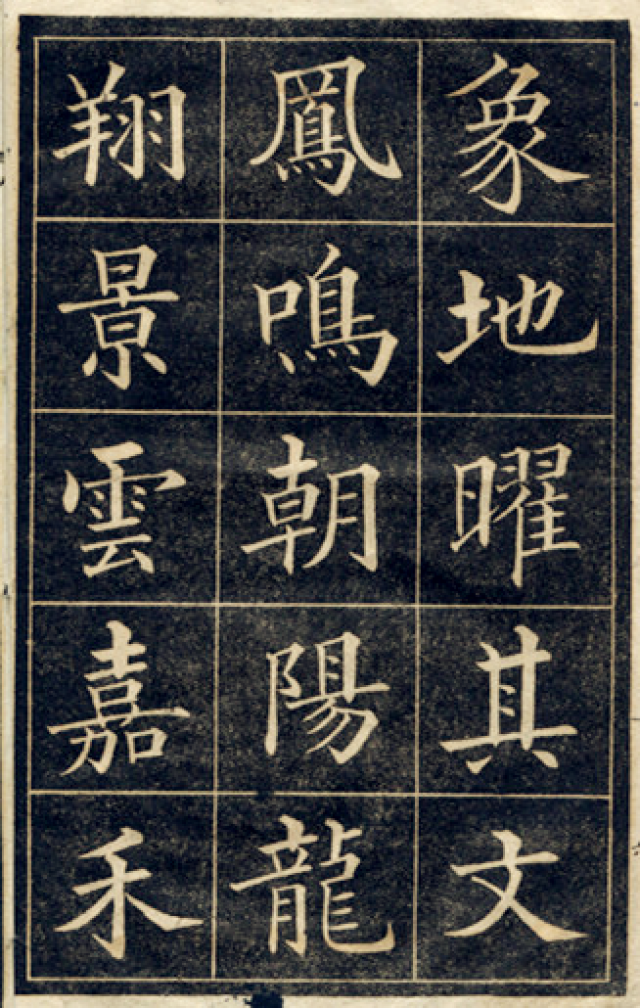 象地曜其文
鳳鳴朝陽龍
翔景雲嘉禾